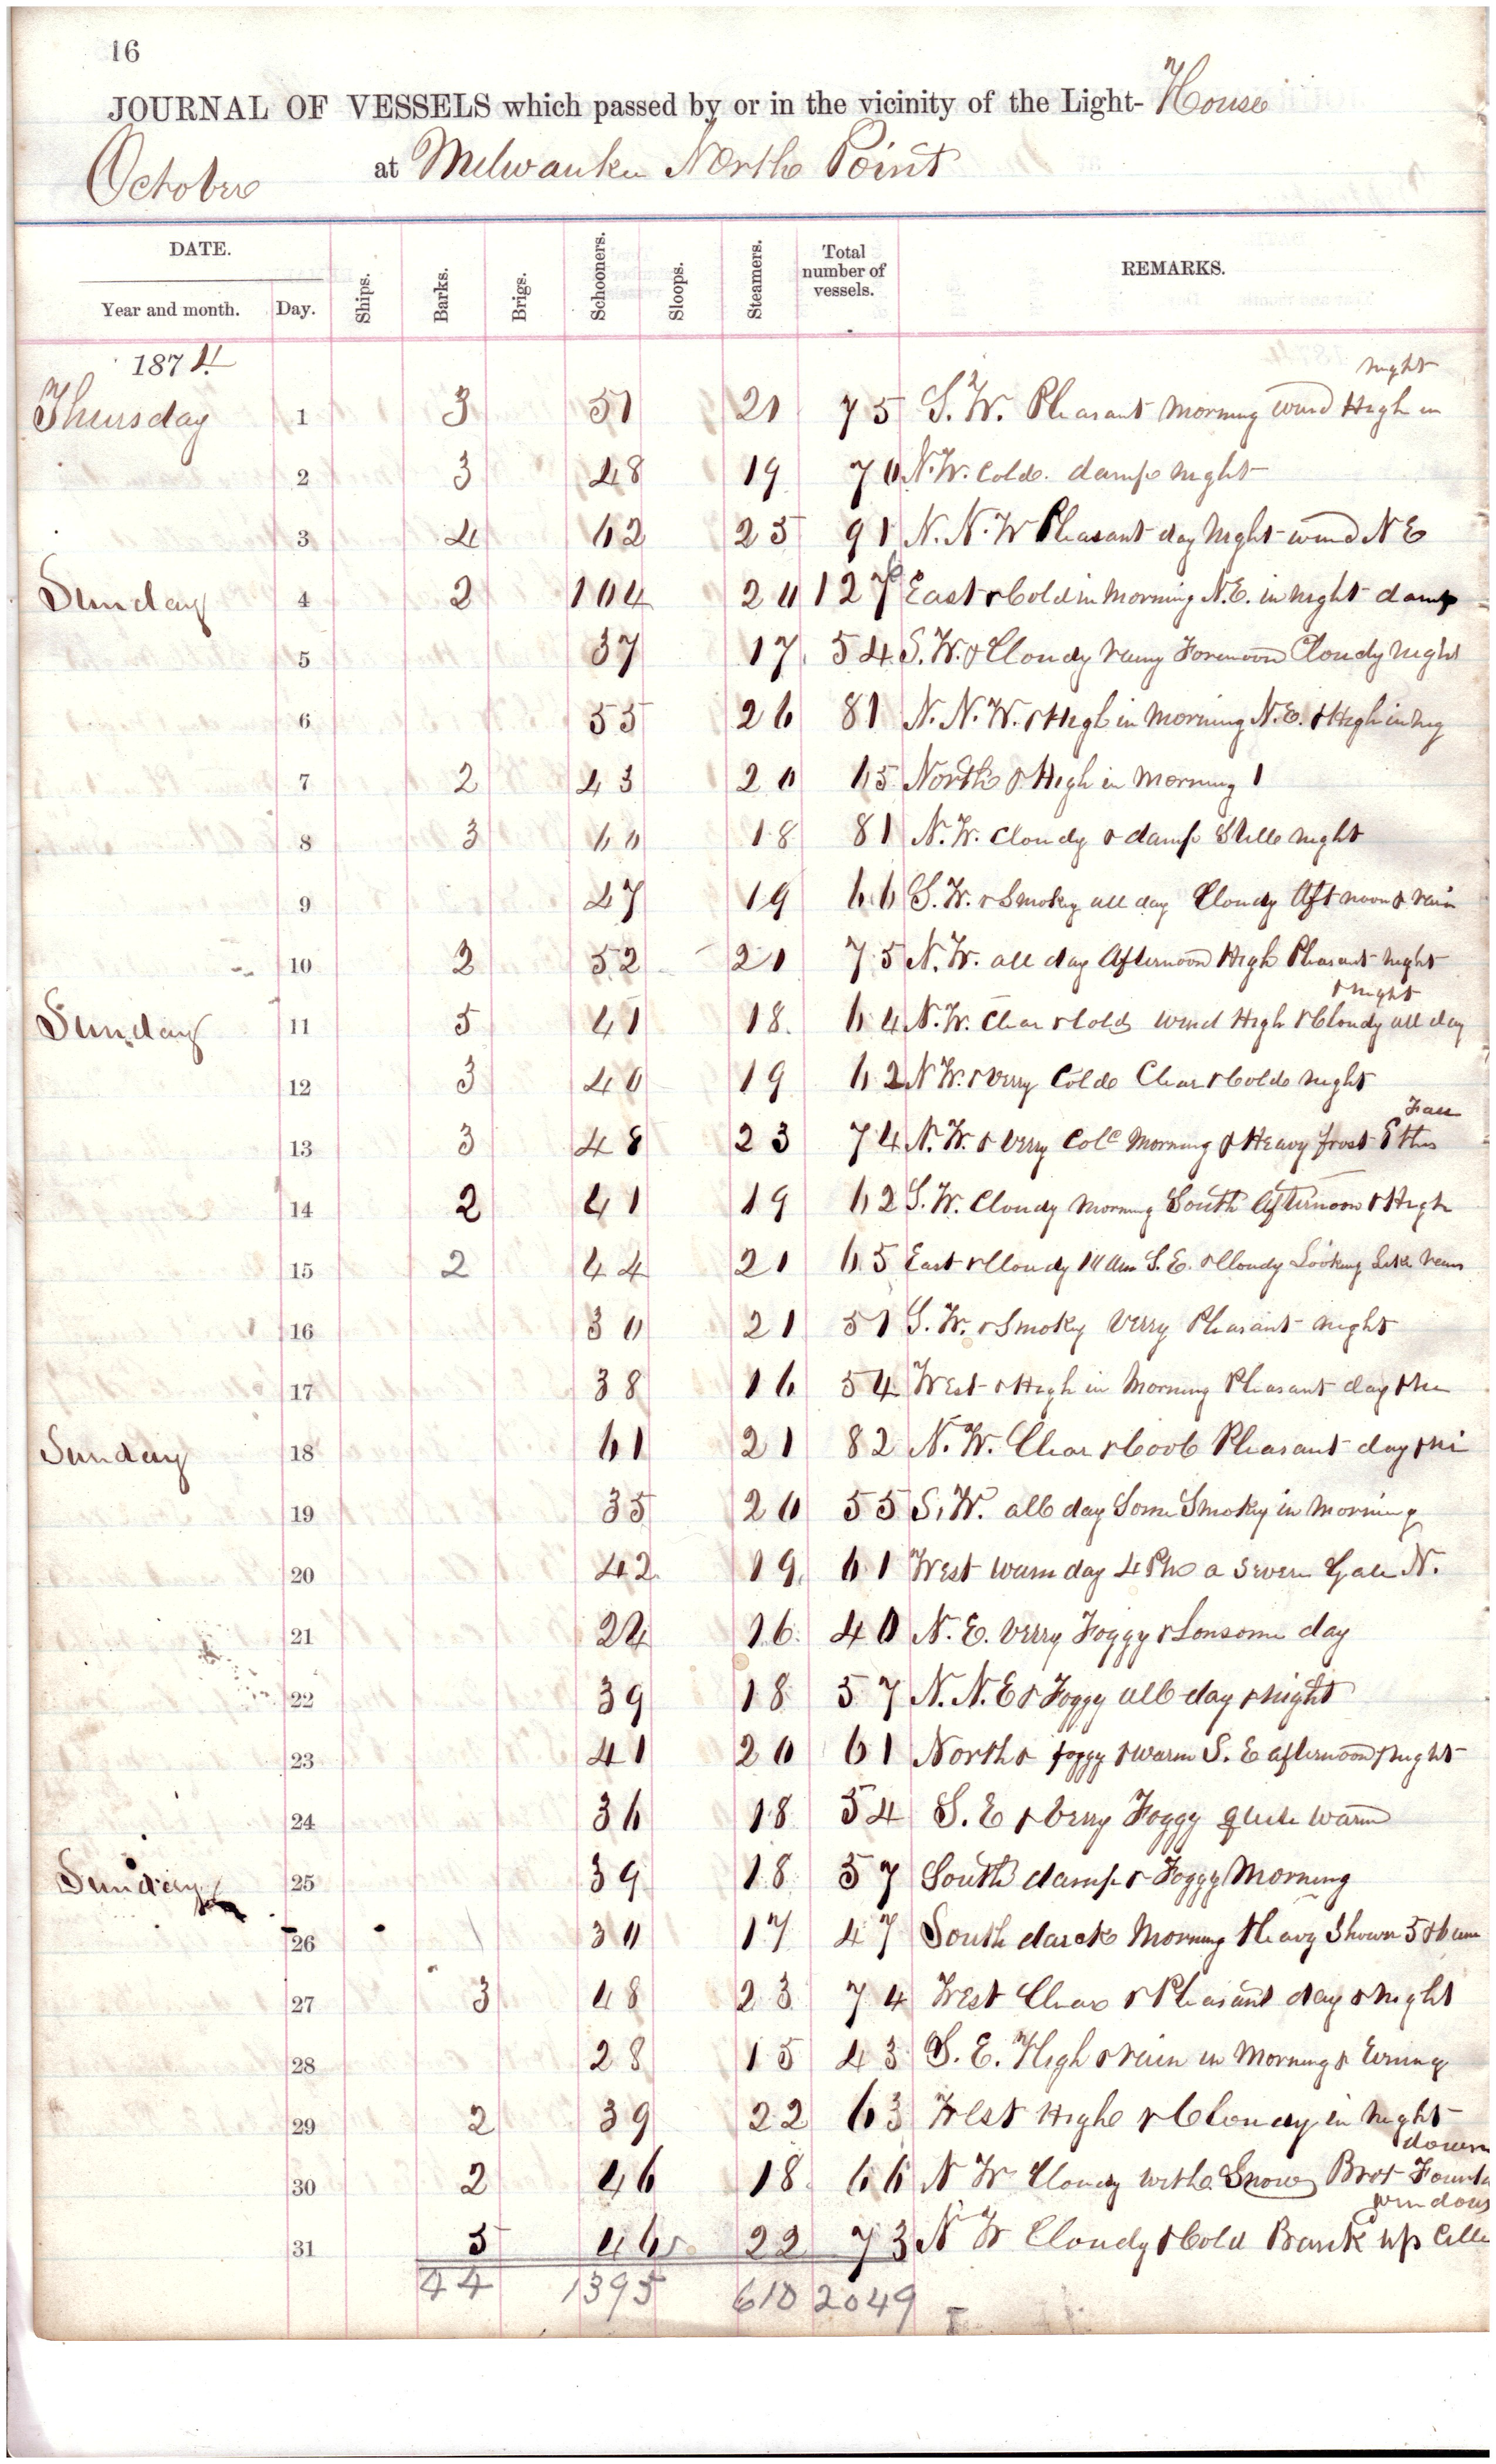 16
JOURNAL OF VESSELS which passed by or in the vicinity of the Light- House
October at Milwaukee North Point
DATE. Ships. Barks. Brigs. Schooners. Sloops. Steamers. Total number of vessels. REMARKS.
Year and month. Day.
1874
night
Thursday 1 3 51 21 75 S. W. Pleasant morning wind High in
2 3 48 19 70 N. W. Colde. damp night
3 4 62 25 91 N. N. W Pleasant day night wind N E
Sunday 4 2 104 20 126 East & Cold in morning N. E. in night damp
5 37 17 54 S. W. & Cloudy rainy Forenoon Cloudy night
6 55 26 81 N. N. W. & High in morning N. E. & High in nig
7 2 43 20 65 North & High in morning
8 3 60 18 81 N. W. Cloudy & damp Stille night
9 47 19 66 S. W. & Smoky all day Cloudy Aft noon & rain
10 2 52 21 75 N. W. all day Afternoon High Pleasant night
& night
Sunday 11 5 41 18 64 N. W. Clear & Cold wind High & Cloudy all day
12 3 40 19 62 N W. & Verry Colde Clear & Colde night
Fall
13 3 48 23 74 N. W. & Verry Cole Morning & Heavy frost this
14 2 41 19 62 S. W. Cloudy morning South Afternoon & High
15 2 44 21 65 East & Cloudy 10 am S. E. & Cloudy Looking Like rain
16 30 21 51 S. W. & Smoky Verry Pleasant night
17 38 16 54 West & High in Morning Pleasant day & ni
Sunday 18 61 21 82 N. W. Clear & Cool Pleasant day & ni
19 35 20 55 S. W. all day Some Smoky in morning
20 42 19 61 West warm day 4 Pm a Severe Gale N.
21 24 16 40 N. E. Verry Foggy & Lonsome day
22 39 18 57 N. N. E & Foggy all day & night
23 41 20 61 North & foggy & warm S. E afternoon & night
24 36 18 54 S. E & Verry Foggy quite warm
Sunday 25 39 18 57 South damp & Foggy Morning
26 30 17 47 South darck Morning Heavy Shower 5 & 6 am
27 3 48 23 74 West Clear & Pleasant day & night
28 28 15 43 S. E. High & rain in Morning & Evning
29 2 39 22 63 West High & Cloudy in night
down
30 2 46 18 66 N W Cloudy with Snow Brot Founta
windows
31 5 46 22 73 N W Cloudy & Cold Bank up Celle
44 1395 610 2049